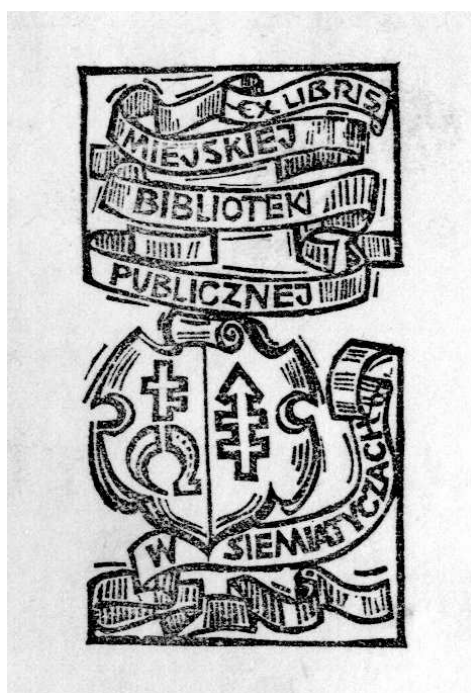 EX LIBRIS
MIEJSKIEJ
BIBLIOTEKI
PUBLICZNEJ
W
SIEMIATYCZACH